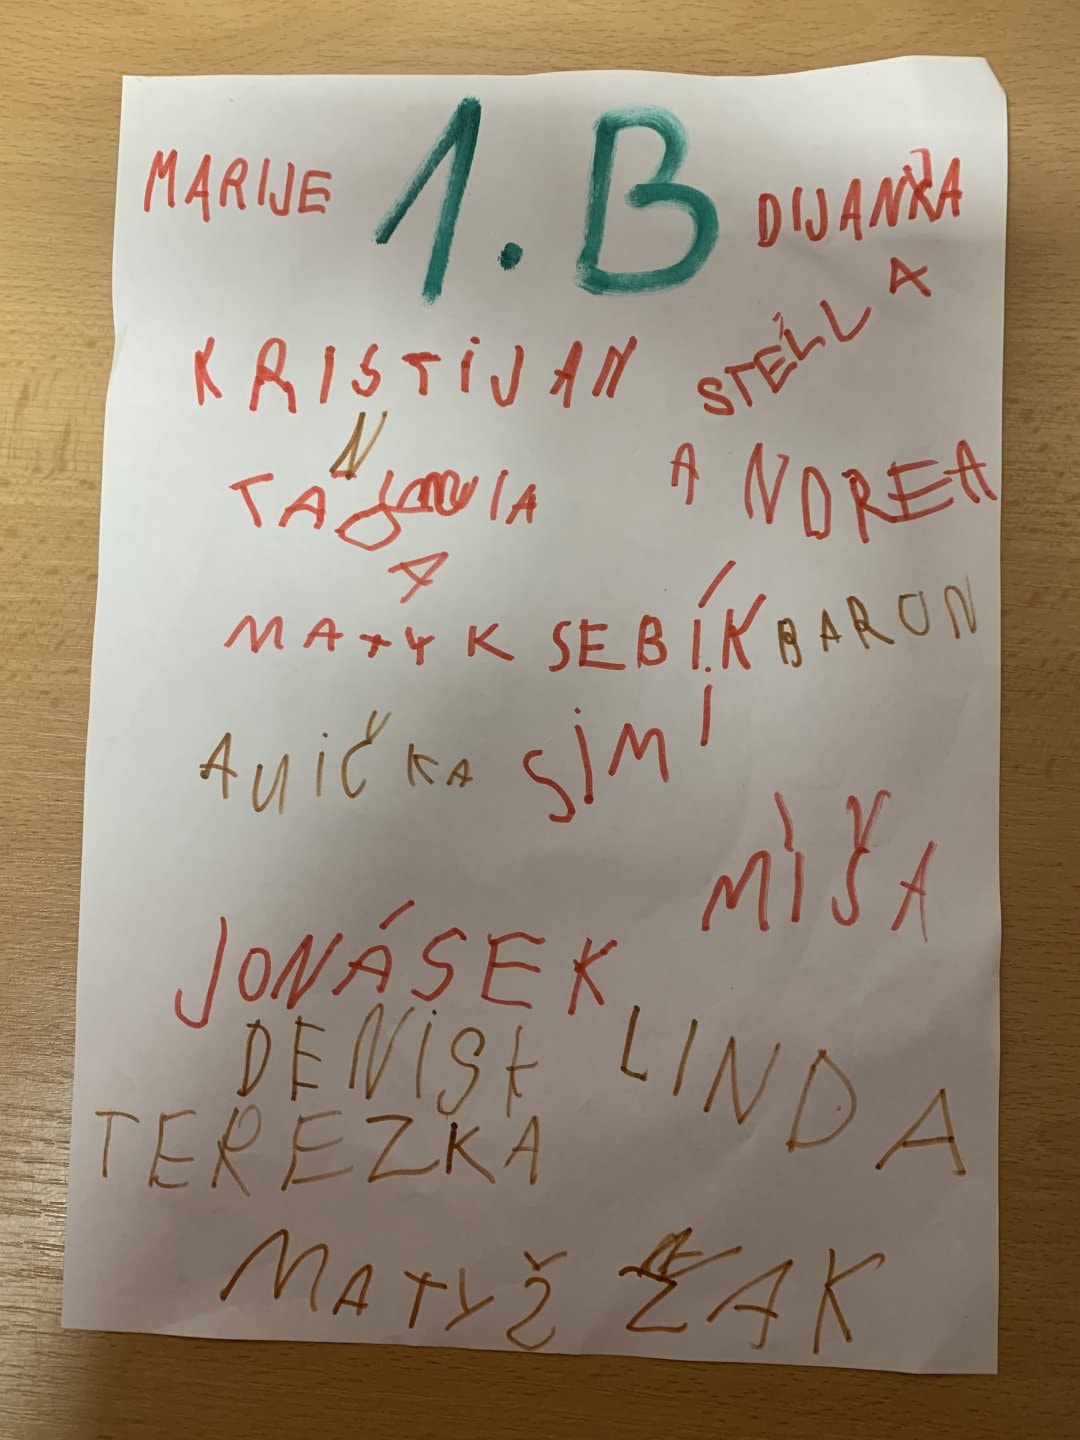 1.B
MARIJE
DIJANKA
STELLA
KRISTIJAN
ANDREA
MATYK SEBÍK BARON
ANIČKA SIMI
MÍŠA
JONÁSEK
DENISA LINDA
TEREZKA
MATYŽ ŽAK